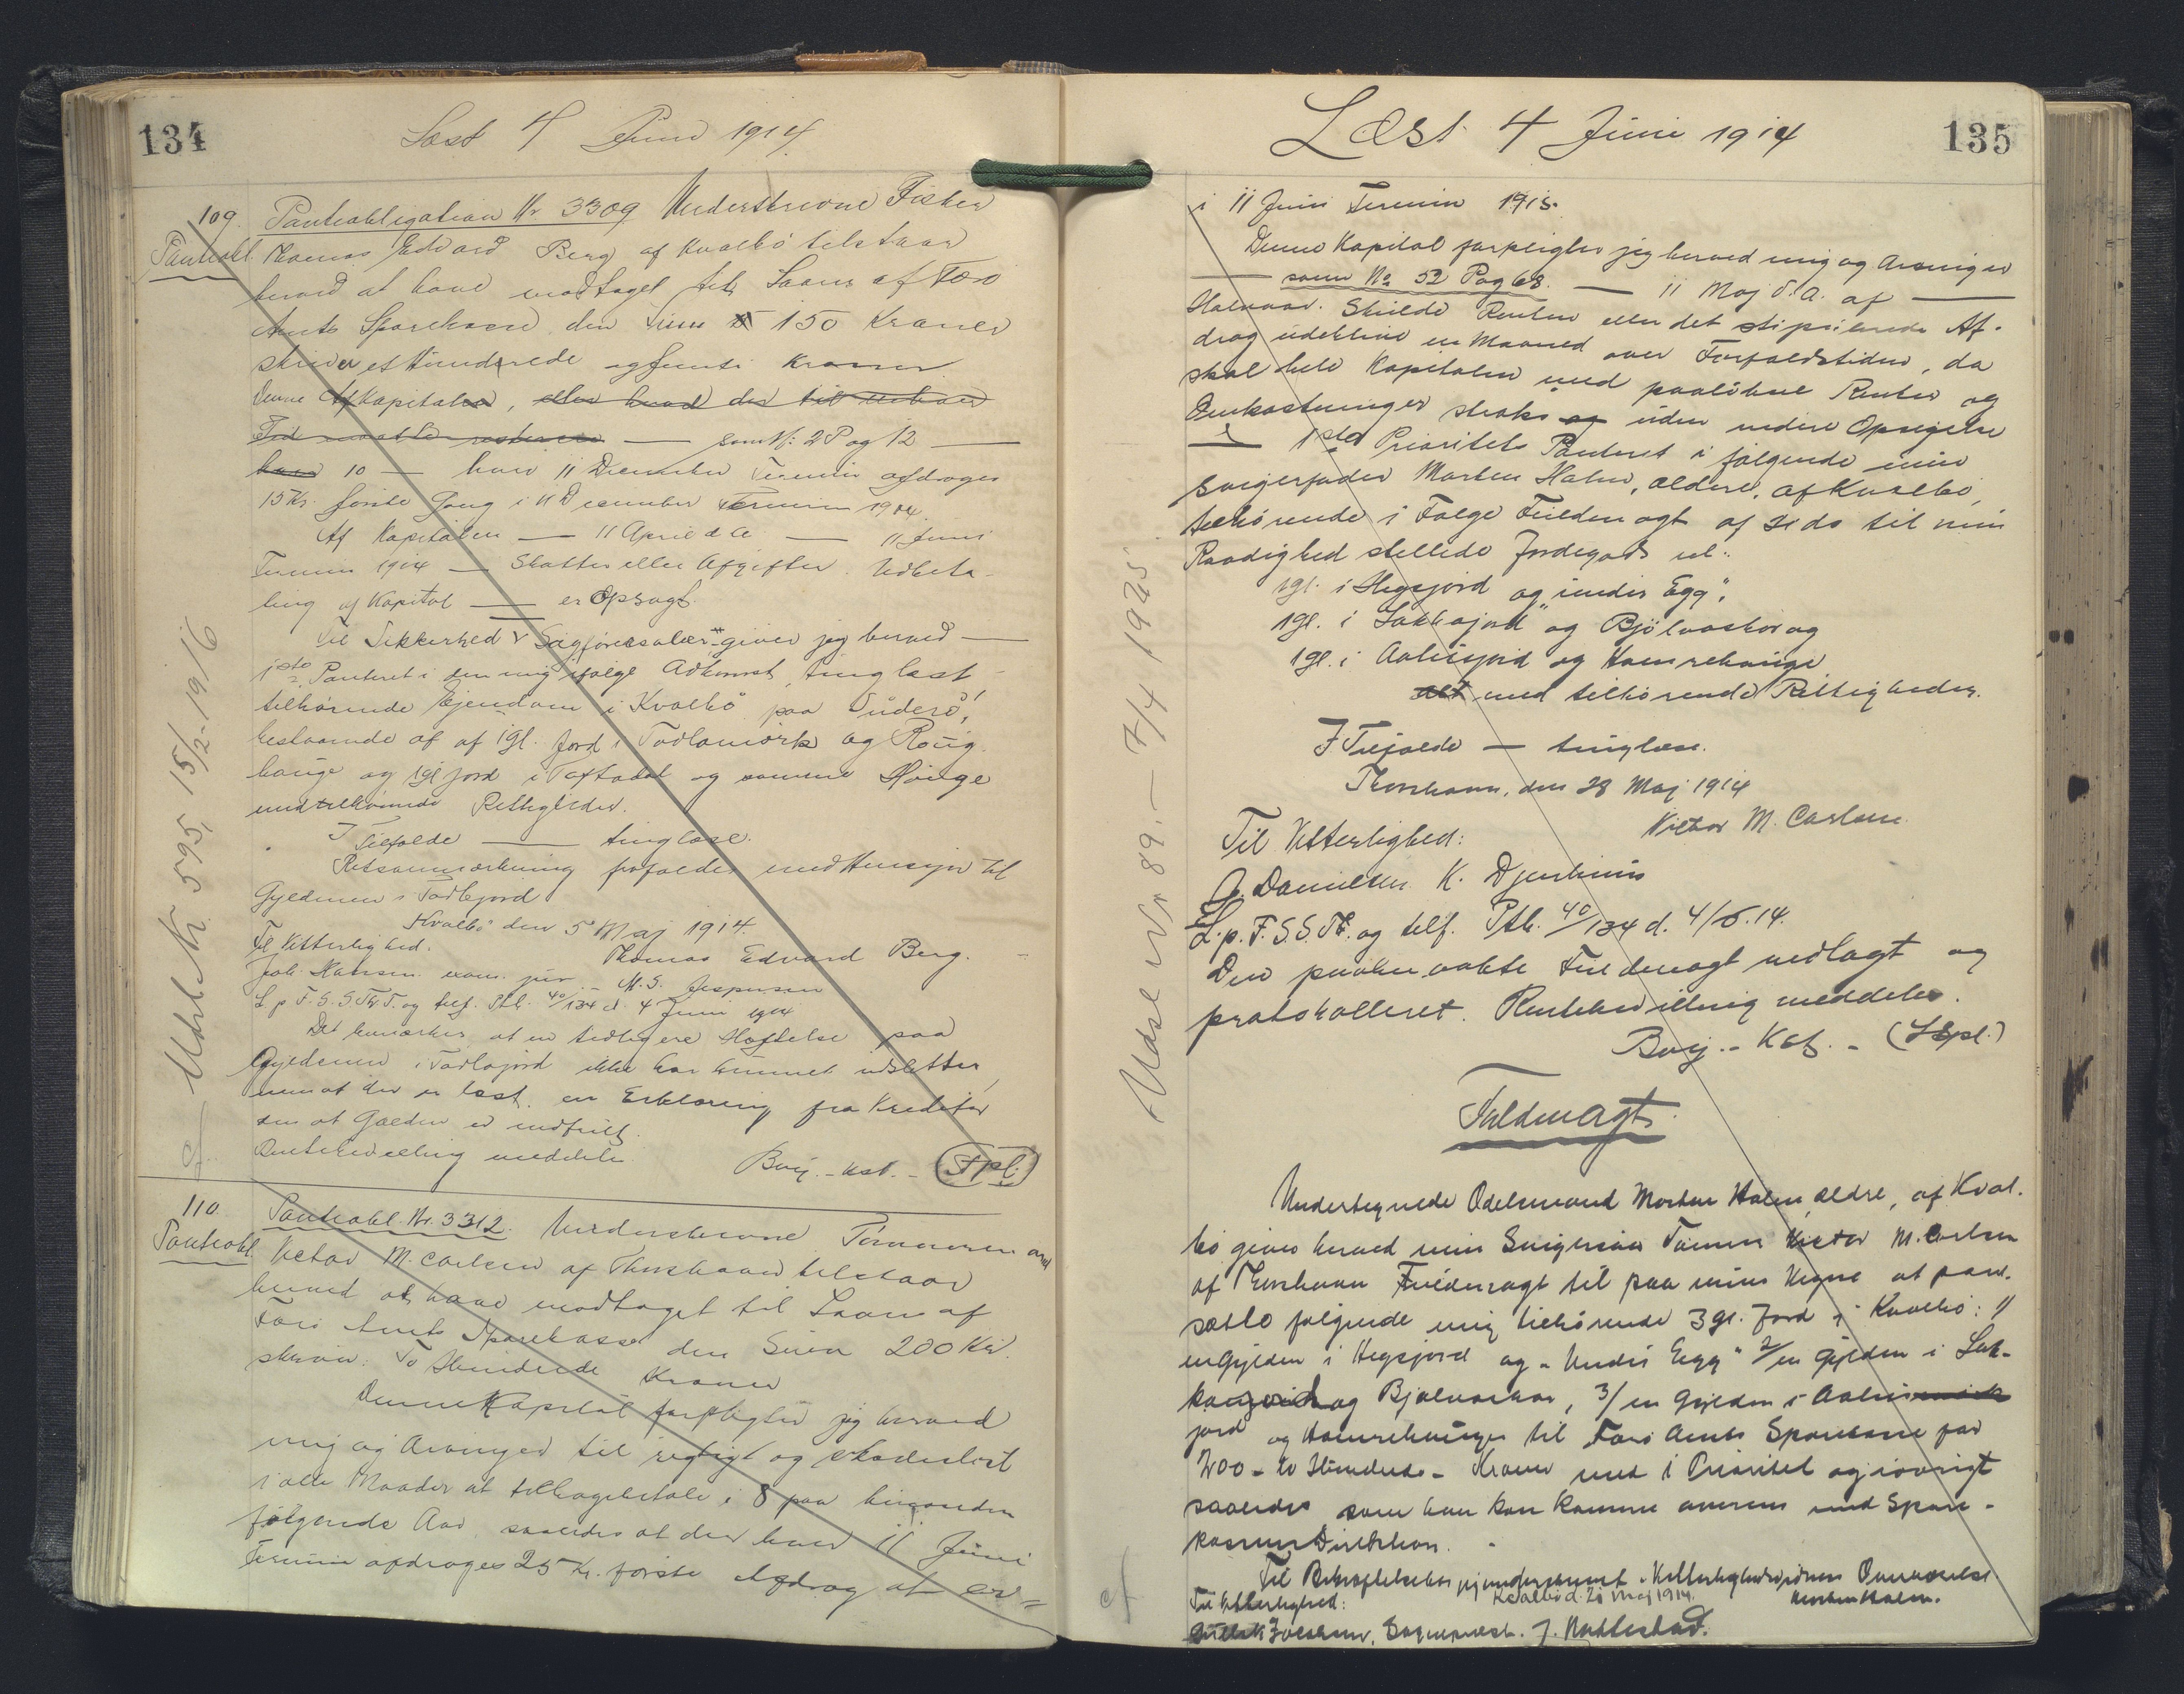 134
Læst 4 Juni 1914.
109. Pantobligation Nr. 3309 Underskrevne Fisker
Pantobl. Thomas Edvard Berg af Kvalbø tilstaar
herved at have modtaget til Laans af Færø
Amts Sparekasse den Sum 150 Kroner
skriver et Hundrede og femti Kroner.
Denne Kapital, eller hvad der til enhver
Tid maatte restere — som Nr: 2 Pag 12 —
hver 10 — hver 11 December Termin afdrages
15 Kr. første Gang i 11 December Termin 1914.
Af Kapitalen — 11 April d A — 11 Juni
Termin 1914 — Skatter eller Afgifter. Udbeta-
ling af Kapital — er Opsagt.
Til Sikkerhed Sagførersalær giver jeg herved —
1ste Panteret i den mig ifølge Adkomst, tinglæst
tilhørende Ejendom i Kvalbø paa Suderø,
bestaaende af af 1 gl. Jord i Todlamørk og
hauge og 1 gl jord i Toftadal og samme Hauge
med tilhørende Rettigheder.
I Tilfælde — tinglæse.
Retsanmærkning frafaldes med Hensyn til
Gylden i Todlajord
Kvalbø den 5 Maj 1914.
Til Vitterlighed. Thomas Edvard Berg.
Joh. Hansen exam. jur. M. S. Jespersen
L. p. F. S. S. Th. T. og tilf. Ptb. 40/134 d. 4 Juni 1914
Det bemærkes, at en tidligere Hæftelse paa
Gyldenen i Todlajord ikke har kunnet udslettes,
men at der er læst en Erklæring fra Kreditor
om at Gælden er indfriet.
Rentebevilling meddeles.
Bærj. - Kst. - (Spl.)
Udsl. Nr 595, 15/12 1916
110. Pantobl. Nr. 3312. Underskrevne Tømmermand
Pantobl. Victor M. Carlsen af Thorshavn tilstaar
herved at have modtaget til Laans af
Færø Amts Sparekasse den Sum 200 Kr.
skriver: To Hundrede Kroner
Denne Kapital forpligter jeg herved
mig og Arvinger til rigtigt og skadesløst
i alle Maader at tilbagebetale i 8 paa hinanden
følgende Aar saaledes at der hver 11 Juni
Termin afdrages 25 Kr. første Afdrag at er=
135
Læst 4 Juni 1914
i 11 Juni Termin 1915.
Denne Kapital forpligter jeg herved mig og Arvinger
— som No 52 Pag 68. — 11 Maj d. A. af —
Halvaar. Skulde Renten eller det stipulerede Af-
drag udeblive en Maaned over Forfaldstiden, da
skal hele Kapitalen med paaløbne Renter og
Omkostninger straks og uden videre Opsigelse
— 1ste Prioritets Panteret i følgende min
Svigerfader Morten Holm, ældre, af Kvalbø,
tilhørende i Følge Fuldmagt af 21 ds til min
Raadighed stillede Jordegods nl:
1 gl. i Hegsjord og undir Egg",
1 gl. i Lakkajord" og Bjølvaskor og
1 gl. i Aalisjord og Hamrehauge
alt med tilhørende Rettigheder.
I Tilfælde — tinglæse.
Thorshavn, den 28 Maj 1914
Victor M. Carlsen
Til Vitterlighed:
J. Danielsen K. Djurhuus
L. p. F. S. S. Th. og tilf. Ptb. 40/134 d. 4/6. 14.
Den paaberaabte Fuldmagt vedlagt og
protokolleret. Rentebevilling meddeles.
Bærj. - Kst. - (Spl.)
Udsl. Nr 89. — 7/4 1925.
Fuldmagt.
Undertegnede Odelsmand Morten Holm, ældre, af Kval-
bø giver herved min Svigersøn Tømmerm Victor M. Carlsen
af Thorshavn Fuldmagt til paa mine Vegne at pant-
sætte følgende mig tilhørende 3 gl. Jord i Kvalbø: 1/
en Gylden i Hegsjord og "Undir Egg" 2/ en Gylden i Lak-
kajord og Bjølvaskor, 3/ en Gylden i Aalis
jord og Hamrehauge til Færø Amts Sparekasse for
200 - to Hundrede - Kroner med 1 Prioritet og iøvrigt
saaledes som han kan komme overens med Spare-
kassens Direktion.
Til Bekræftelse har jeg underskrevet i Vitterlighedsvidners Overværelse
Kvalbø d. 21 Maj 1914.
Til Vitterlighed: Morten Holm.
Jacobsen, Sognepræst. J. Nattestad.